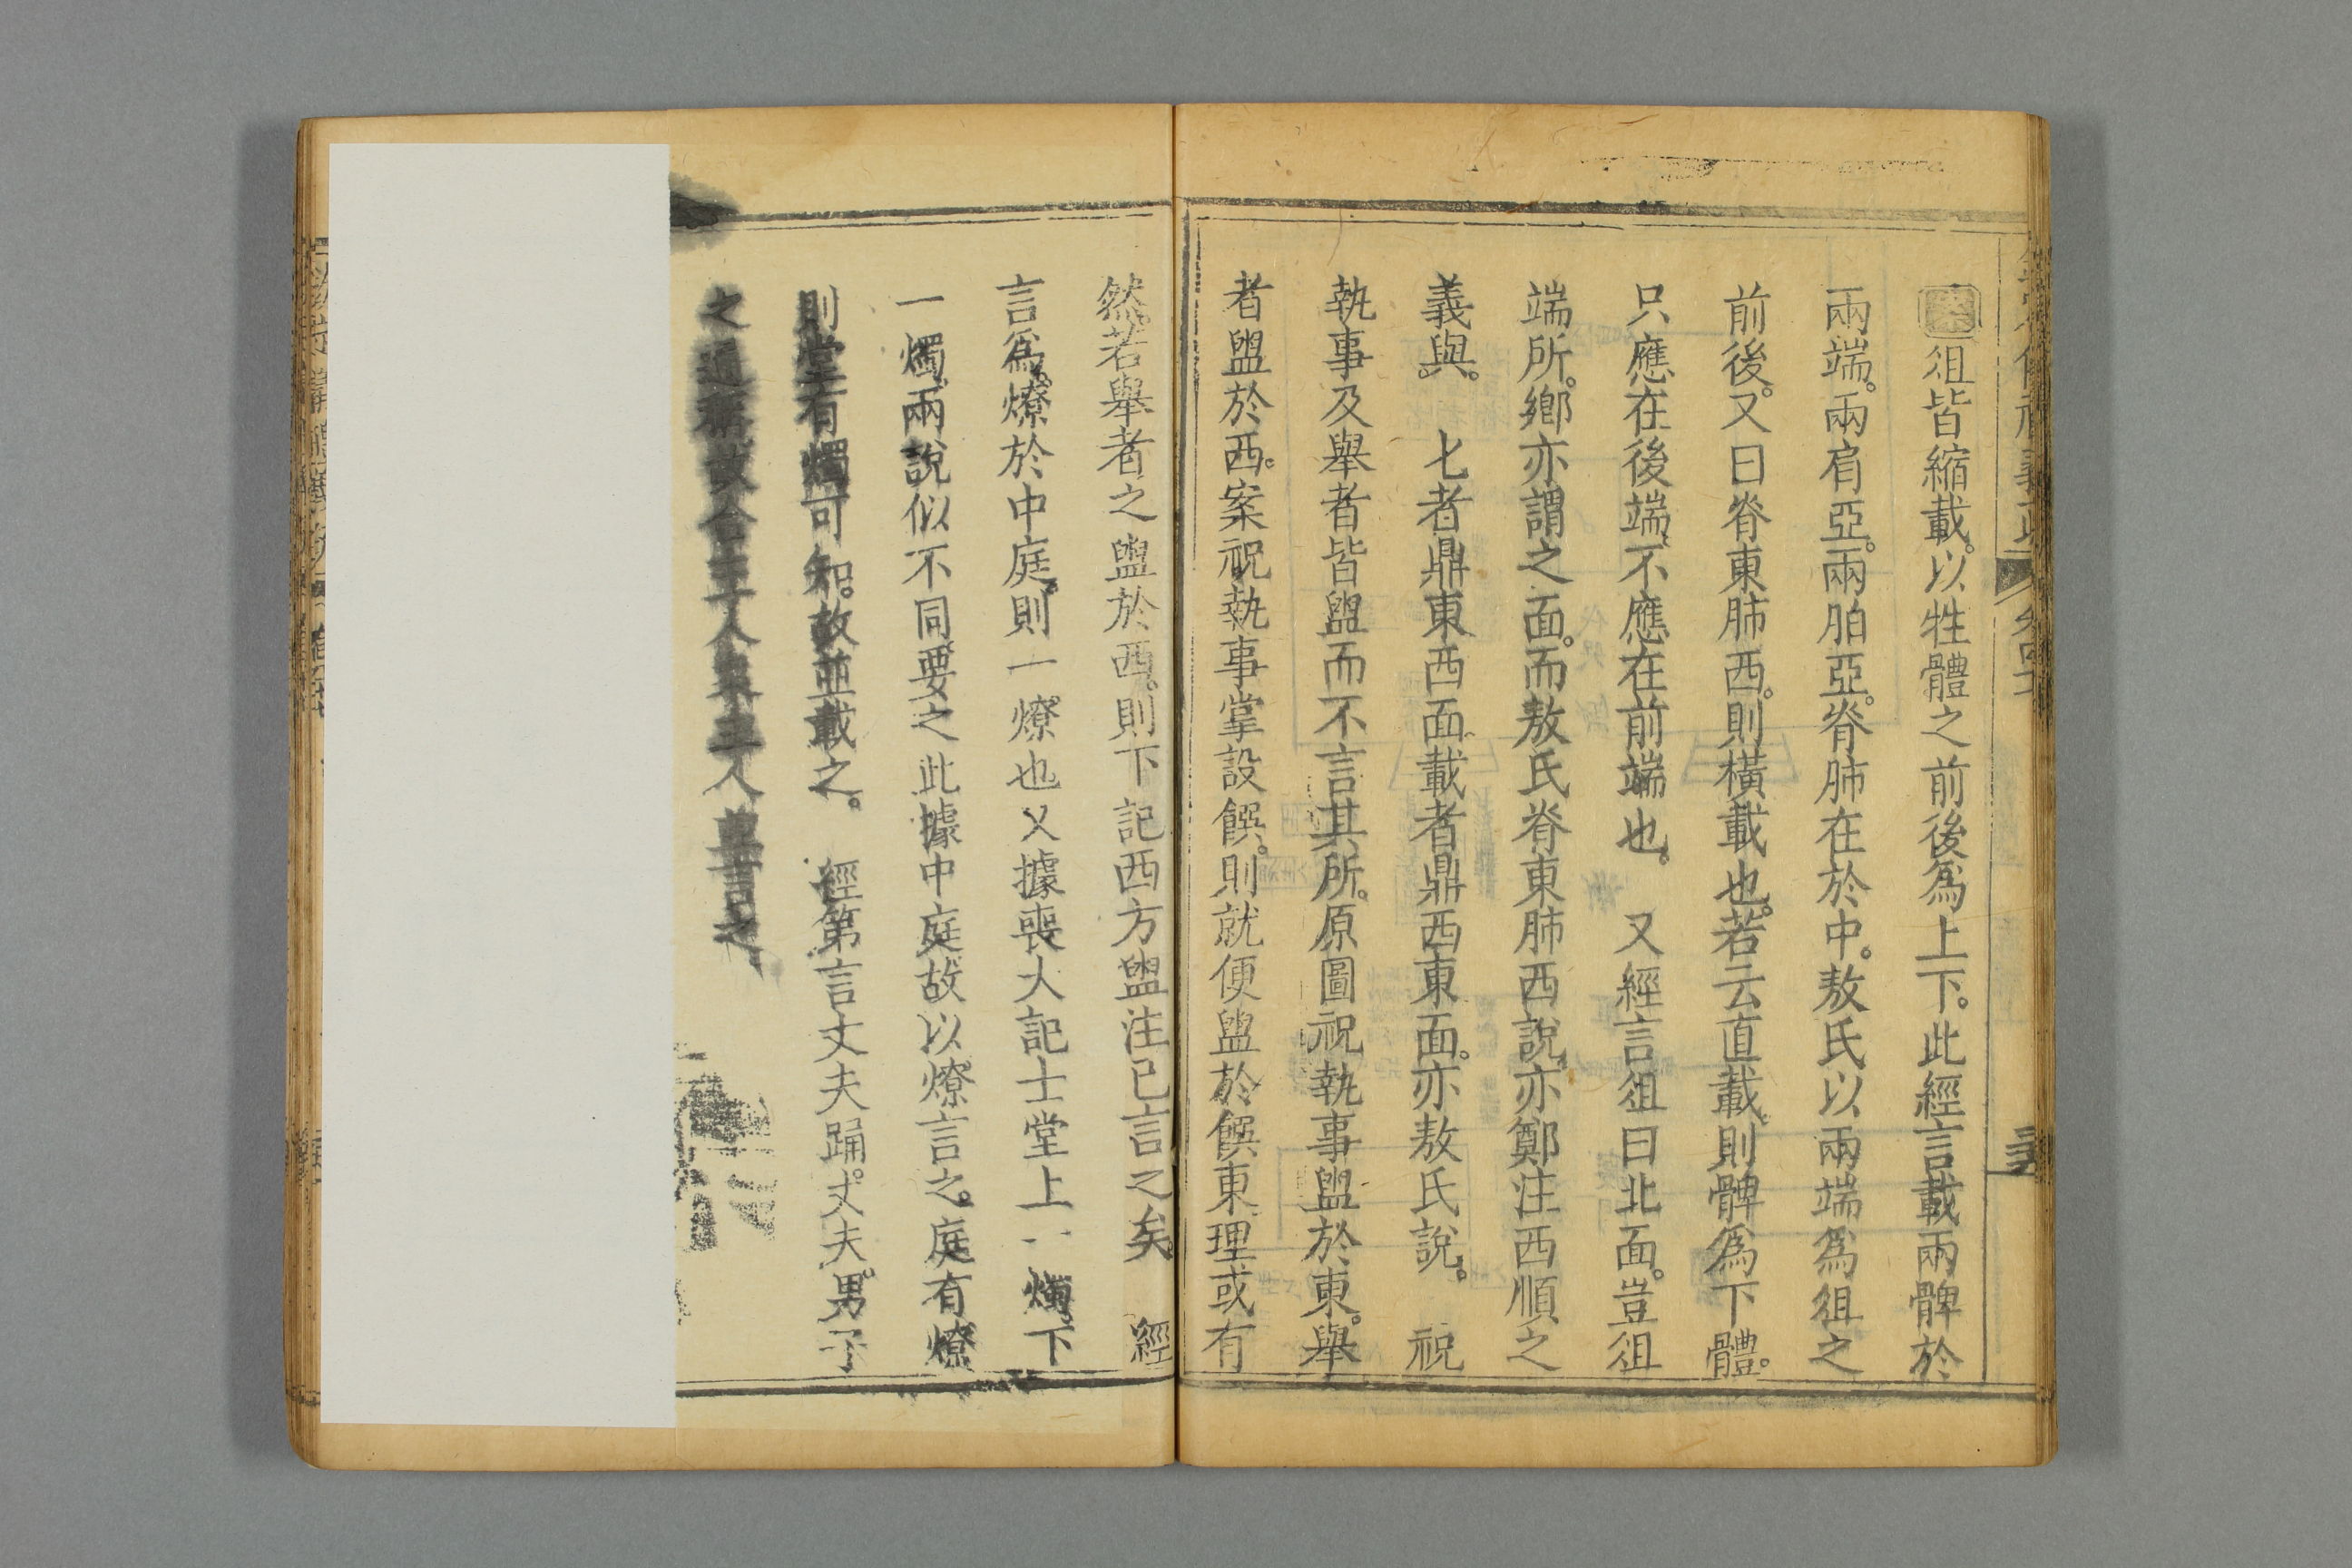 案俎皆縮載。以牲體之前後爲上下。此經言載兩髀於
兩端。兩肩亞。兩胉亞。脊肺在於中。敖氏以兩端爲俎之
前後。又曰脊東肺西。則橫載也。若云直載。則髀爲下體。
只應在後端。不應在前端也。 又經言俎曰北面。豈俎
端所。鄉亦謂之面。而敖氏脊東肺西說。亦鄭注西順之
義與。 匕者鼎東西面。載者鼎西東面。亦敖氏說。 祝
執事及舉者皆盥而不言其所。原圖祝執事盥於東。舉
者盥於西。案祝執事掌設饌。則就便盥於饌東理或有
然。若舉者之盥於西。則下記西方盥注已言之矣。 經
言爲燎於中庭。則一燎也又據喪大記士堂上一燭。下
一燭。兩說似不同。要之此據中庭故以燎言之。庭有燎
則堂有燭可知。故並載之。 經第言丈夫踊。丈夫。男子
之通稱故合主人衆主人 言之